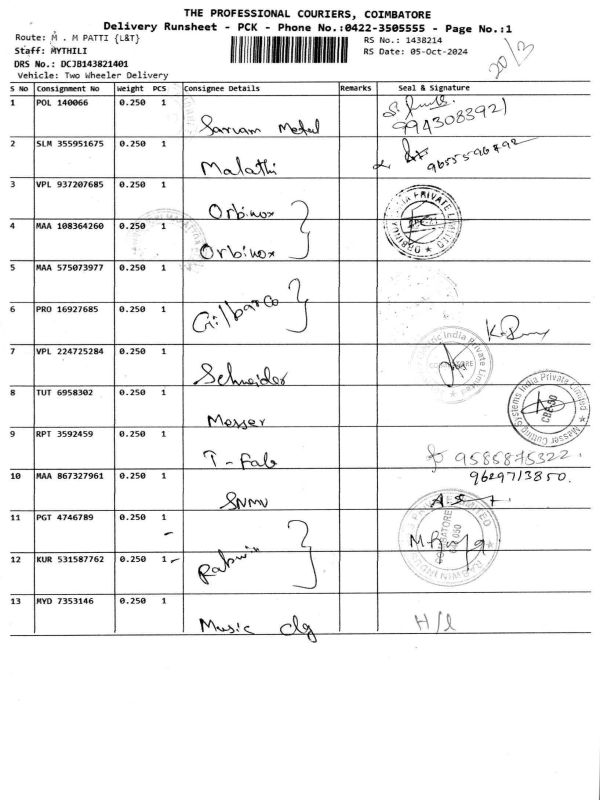 THE PROFESSIONAL COURIERS, COIMBATORE
Delivery Runsheet - PCK - Phone No.:0422-3505555 - Page No.:1
Route: M . M PATTI {L&T}
RS No.: 1438214
20/3
Staff: MYTHILI
RS Date: 05-Oct-2024
DRS No.: DCJB143821401
Vehicle: Two Wheeler Delivery
S No Consignment No Weight PCS Consignee Details Remarks Seal & Signature
1 POL 140066 0.250 1 Sarvam Metal 9943083921
2 SLM 355951675 0.250 1 Malathi 9655596792
3 VPL 937207685 0.250 1 Orbinox
4 MAA 108364260 0.250 1 Orbinox
5 MAA 575073977 0.250 1
6 PRO 16927685 0.250 1 Gilbarco
7 VPL 224725284 0.250 1 Schneider
8 TUT 6958302 0.250 1 Messer
Messer Cutting Systems India Private Limited
CBE-50
9 RPT 3592459 0.250 1 T-Fab 9585875322
10 MAA 867327961 0.250 1 SNMV 9629713850
11 PGT 4746789 0.250 1 -
12 KUR 531587762 0.250 1 -
COIMBATORE
13 MYD 7353146 0.250 1 Music clg H/l